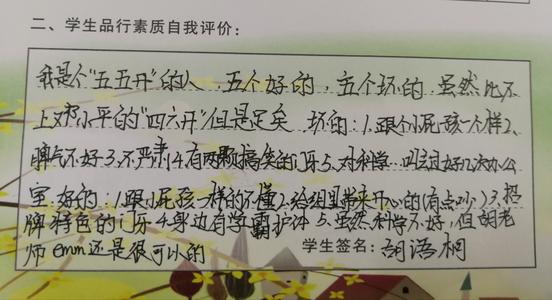 二、学生品行素质自我评价:
我是个"五五开"的人,五个好的,五个坏的,虽然比不
上邓小平的"四六开"但是足矣 坏的:1.跟个小屁孩一个样2、
脾气不好3.不严肃4.有两颗搞笑的门牙5.对科学 叫过好几次办公
室 好的:1.跟小屁孩一样的不懂2.给组里带来开心的(有点吵)3.招
牌特色的门牙4.身边有学霸护体 5.虽然科学不好,但胡老
师emm还是很可以的 学生签名:胡语桐